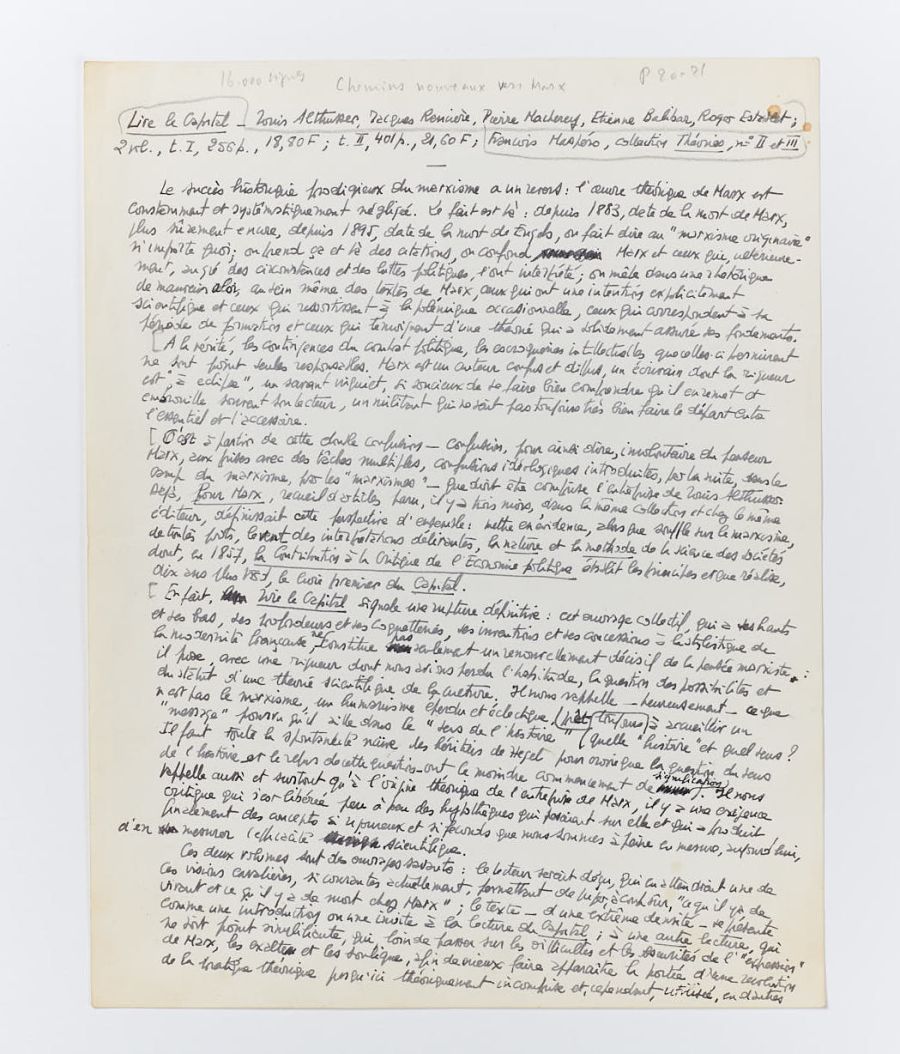 16.000 signes
Chemins nouveaux vers Marx
P 20-21
Lire le Capital – Louis Althusser, Jacques Rancière, Pierre Macherey, Etienne Balibar, Roger Establet ;
2 vol., t. I, 256 p., 18,80 F ; t. II, 401 p., 21,60 F ; François Maspéro, collection Théories, n° II et III
Le succès historique prodigieux du marxisme a un revers : l'œuvre théorique de Marx est
constamment et systématiquement négligée. Le fait est là : depuis 1883, date de la mort de Marx,
plus sûrement encore, depuis 1895, date de la mort de Engels, on fait dire au "marxisme originaire"
n'importe quoi ; on prend çà et là des citations, on confond Marx et ceux qui, ultérieure-
ment, au gré des circonstances et des luttes politiques, l'ont interprété ; on mêle dans une rhétorique
de mauvais aloi, au sein même des textes de Marx, ceux qui ont une intention explicitement
scientifique et ceux qui ressortissent à la polémique occasionnelle, ceux qui correspondent à sa
période de formation et ceux qui témoignent d'une théorie qui a solidement assuré ses fondements.
[ A la vérité, les contingences du combat politique, les escroqueries intellectuelles que celles-ci permirent
ne sont point seules responsables. Marx est un auteur confus et diffus, un écrivain dont la rigueur
est "à éclipse", un savant inquiet, si soucieux de se faire bien comprendre qu'il en remet et
embrouille souvent son lecteur, un militant qui ne sait pas toujours très bien faire le départ entre
l'essentiel et l'accessoire.
[ C'est à partir de cette double confusion – confusion, pour ainsi dire, involontaire du penseur
Marx, aux prises avec des tâches multiples, confusions idéologiques introduites, par la suite, dans le
camp du marxisme, par les "marxismes" – que doit être comprise l'entreprise de Louis Althusser.
Déjà, Pour Marx, recueil d'articles paru, il y a trois mois, dans la même collection et chez le même
éditeur, définissait cette perspective d'ensemble : mettre en évidence, alors que souffle sur le marxisme,
de toutes parts, le vent des interprétations délirantes, la nature et la méthode de la science des sociétés
dont, en 1857, la Contribution à la Critique de l'Economie politique établit les principes et que réalise,
dix ans plus tard, le livre premier du Capital.
[ En fait, Lire le Capital signale une rupture définitive : cet ouvrage collectif, qui a ses hauts
et ses bas, ses profondeurs et ses coquetteries, ses inventions et ses concessions à la stylistique de
la modernité française, ne constitue pas seulement un renouvellement décisif de la pensée marxiste :
il pose, avec une rigueur dont nous avions perdu l'habitude, la question des possibilités et
du statut d'une théorie scientifique de la culture. Il nous rappelle – heureusement – ce que
n'est pas le marxisme, un humanisme éperdu et éclectique, prêt toujours à accueillir un
"message" pourvu qu'il aille dans le "sens de l'histoire" (quelle "histoire" et quel sens ?
Il faut toute la spontanéité naïve des héritiers de Hegel pour croire que la question du sens
de l'histoire et le refus de cette question ont le moindre commencement de signification). Il nous
rappelle aussi et surtout qu'à l'origine théorique de l'entreprise de Marx, il y a une exigence
critique qui s'est libérée peu à peu des hypothèques qui pesaient sur elle et qui a produit
finalement des concepts si rigoureux et si féconds que nous sommes à peine en mesure, aujourd'hui,
d'en mesurer l'efficacité scientifique.
Ces deux volumes sont des ouvrages savants : le lecteur serait déçu, qui en attendrait une de
ces visions cavalières, si courantes actuellement, permettant de juger, à coup sûr, "ce qu'il y a de
vivant et ce qu'il y a de mort chez Marx" ; le texte – d'une extrême densité – se présente
comme une introduction ou une invite à la lecture du Capital ; à une autre lecture, qui
ne soit point simplifiante, qui, loin de passer sur les difficultés et les obscurités de l'"expression"
de Marx, les exalte et les souligne, afin de mieux faire apparaître la portée d'une révolution
de la pratique théorique jusqu'ici théoriquement incomprise et, cependant, utilisée, en d'autres